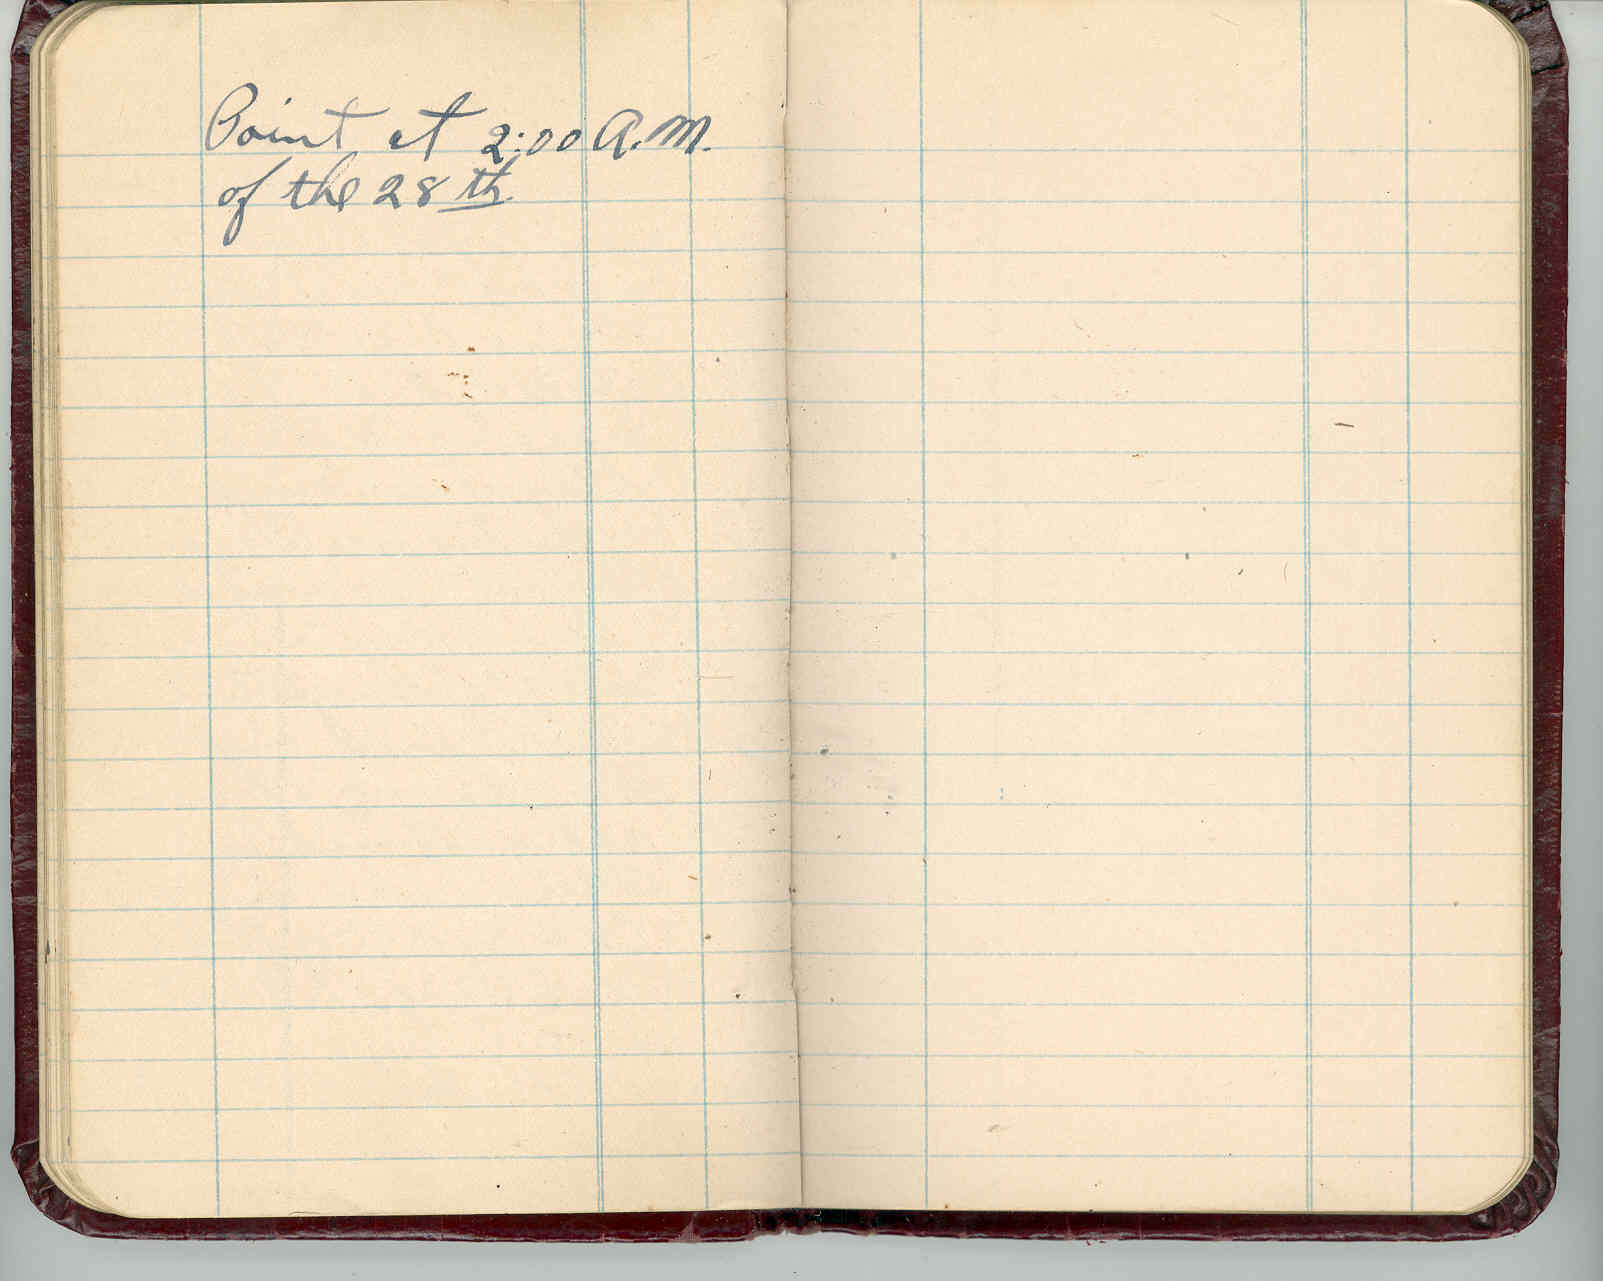 Point at 2:00 A.M.
of the 28th.